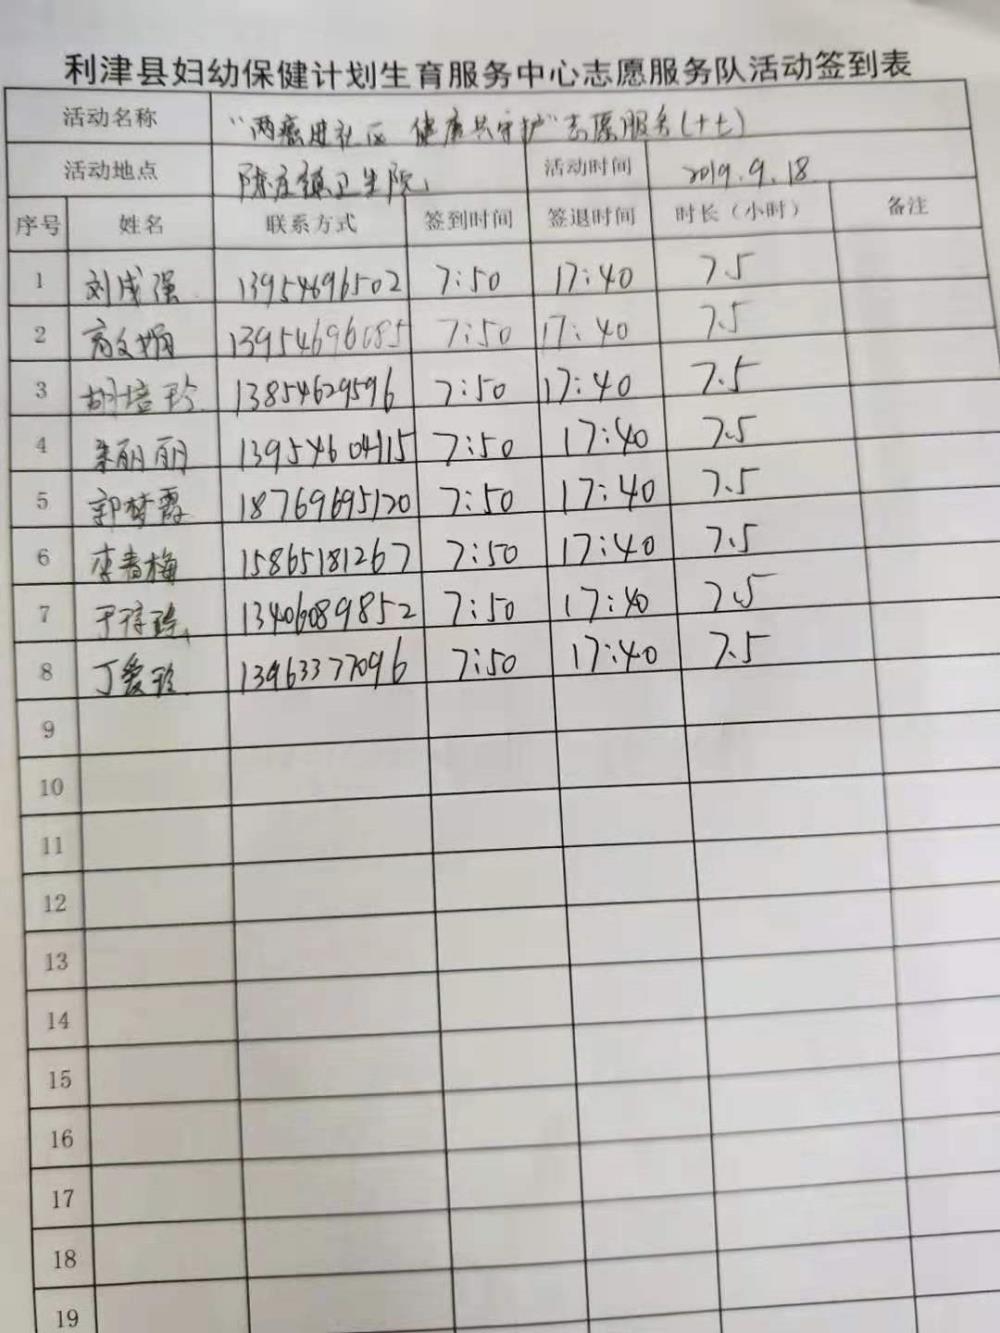 利津县妇幼保健计划生育服务中心志愿服务队活动签到表
活动名称 “两癌进社区 健康共守护”志愿服务(十七)
活动地点 陈庄镇卫生院 活动时间 2019.9.18
序号 姓名 联系方式 签到时间 签退时间 时长（小时） 备注
1 刘成强 13954696502 7:50 17:40 7.5
2 高文娟 13954696085 7:50 17:40 7.5
3 胡培珍 13854629596 7:50 17:40 7.5
4 朱丽丽 13954604115 7:50 17:40 7.5
5 郭梦霞 18769695120 7:50 17:40 7.5
6 李春梅 15865181267 7:50 17:40 7.5
7 13406089852 7:50 17:40 7.5
8 丁爱珍 13963377096 7:50 17:40 7.5
9
10
11
12
13
14
15
16
17
18
19